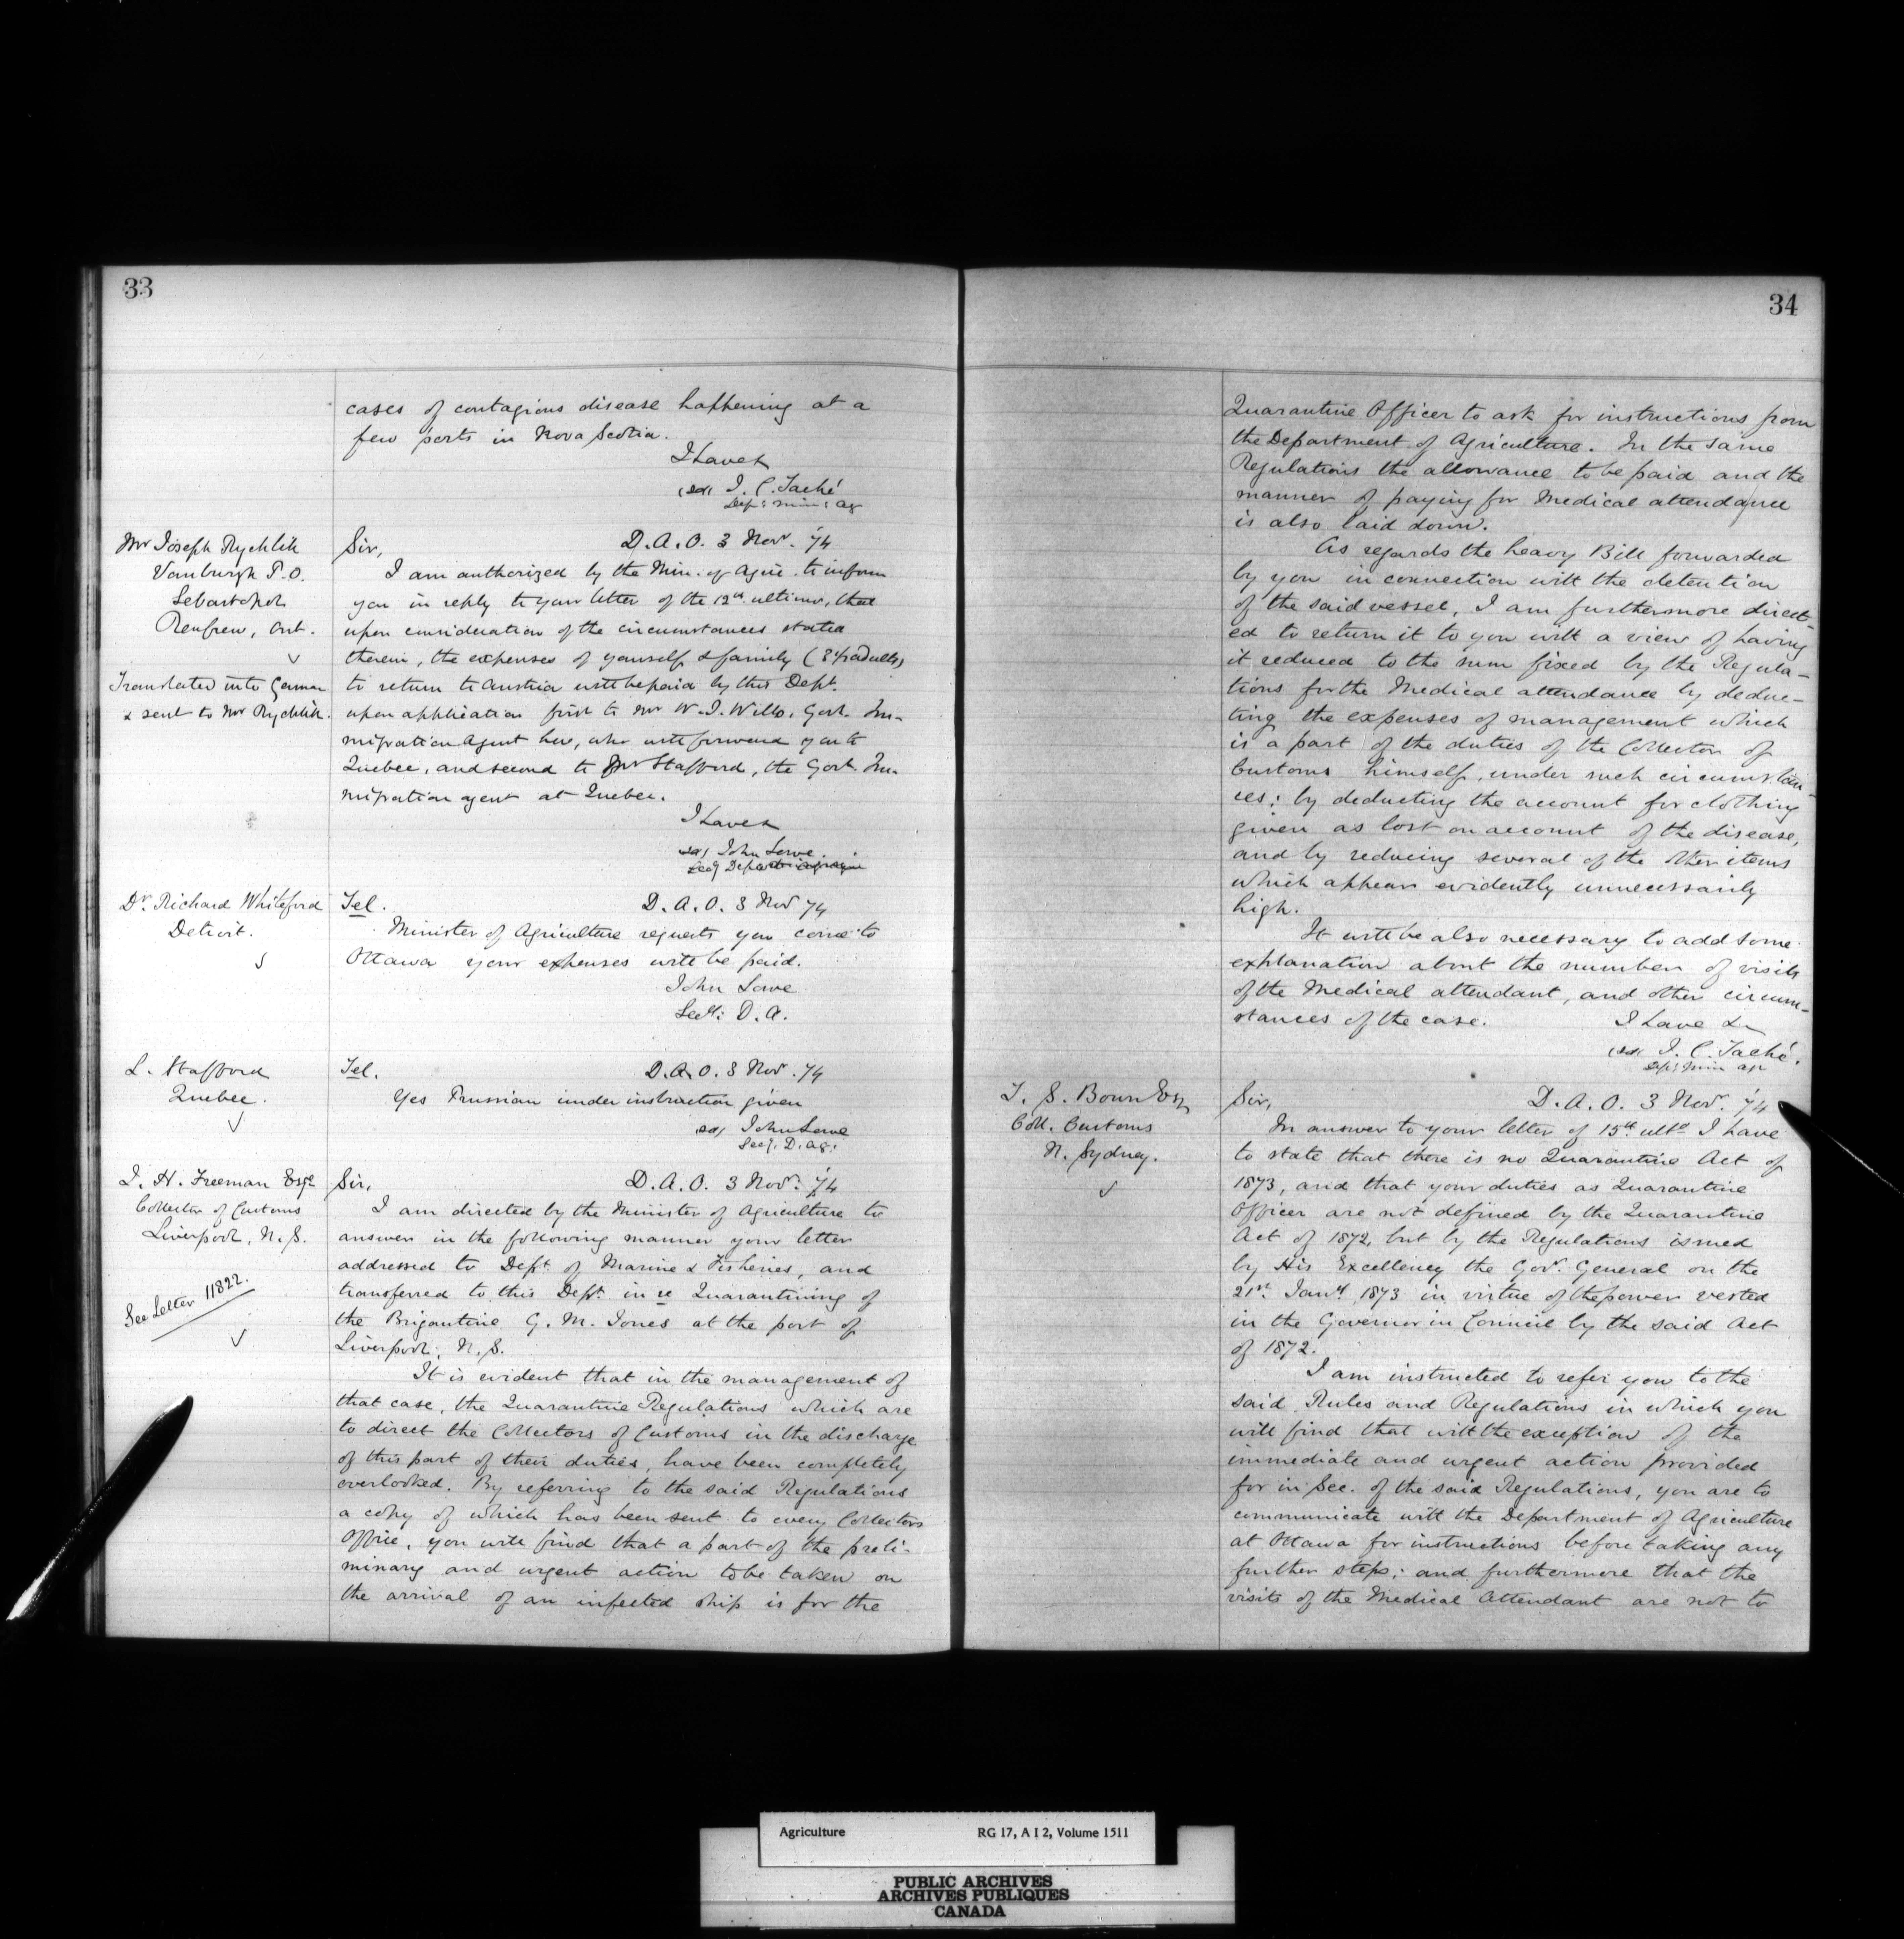 33
cases of contagious disease happening at a
few ports in Nova Scotia.
I have &
(sd) J. C. Taché
Dep: Min: Ag
Mr Joseph Rychlik
Vanburgh P.O.
Sebastopol
Renfrew, Ont.
Translated into German
& sent to Mr Rychlik.
Sir, D. A. O. 3 Nov. '74
I am authorized by the Min. of Agric. to inform
you in reply to your letter of the 12th ultimo, that
upon consideration of the circumstances stated
therein, the expenses of yourself & family ( adults)
to return to Austria will be paid by this Dept.
upon application first to Mr W. J. Wills, Govt. Im-
migration Agent here, who will forward you to
Quebec, and second to Mr Stafford, the Govt. Im-
migration agent at Quebec.
I have &
(sd) John Lowe
Secy Dept
Dr. Richard Whiteford
Detroit.
Tel. D. A. O. 3 Nov 74
Minister of Agriculture requests you come to
Ottawa your expenses will be paid.
John Lowe
Secy: D. A.
L. Stafford
Quebec.
Tel. D. A. O. 3 Nov. 74
Yes Prussian under instruction given
(sd) John Lowe
Secy. D. Ag:
J. H. Freeman Esqe
Collector of Customs
Liverpool, N. S.
See Letter 11822.
Sir, D. A. O. 3 Nov. '74
I am directed by the Minister of Agriculture to
answer in the following manner your letter
addressed to Dept. of Marine & Fisheries, and
transferred to this Dept. in re Quarantining of
the Brigantine G. M. Jones at the port of
Liverpool, N. S.
It is evident that in the management of
that case, the Quarantine Regulations which are
to direct the Collectors of Customs in the discharge
of this part of their duties, have been completely
overlooked. By referring to the said Regulations
a copy of which has been sent to every Collectors
Office, you will find that a part of the preli-
minary and urgent action to be taken on
the arrival of an infected ship is for the
34
Quarantine Officer to ask for instructions from
the Department of Agriculture. In the same
Regulations the allowance to be paid and the
manner of paying for Medical attendance
is also laid down.
As regards the heavy Bill forwarded
by you in connection with the detention
of the said vessel, I am furthermore direct-
ed to return it to you with a view of having
it reduced to the sum fixed by the Regula-
tions for the Medical attendance by deduc-
ting the expenses of management which
is a part of the duties of the Collector of
Customs himself, under such circumstan-
ces; by deducting the account for clothing
given as lost on account of the disease,
and by reducing several of the other items
which appear evidently unnecessarily
high.
It will be also necessary to add some
explanation about the number of visits
of the Medical attendant, and other circum-
stances of the case. I have &
(sd) J. C. Taché.
Dep: Min Ag
T. S. Bown Esq
Coll. Customs
N. Sydney.
Sir, D. A. O. 3 Nov. '74
In answer to your letter of 15th ulto I have
to state that there is no Quarantine Act of
1873, and that your duties as Quarantine
Officer are not defined by the Quarantine
Act of 1872, but by the Regulations issued
by His Excellency the Gov. General on the
21st. Jany 1873 in virtue of the power vested
in the Governor in Council by the said Act
of 1872.
I am instructed to refer you to the
said Rules and Regulations in which you
will find that with the exception of the
immediate and urgent action provided
for in Sec. of the said Regulations, you are to
communicate with the Department of Agriculture
at Ottawa for instructions before taking any
further steps; and furthermore that the
visits of the Medical Attendant are not to
Agriculture RG 17, A I 2, Volume 1511
PUBLIC ARCHIVES
ARCHIVES PUBLIQUES
CANADA